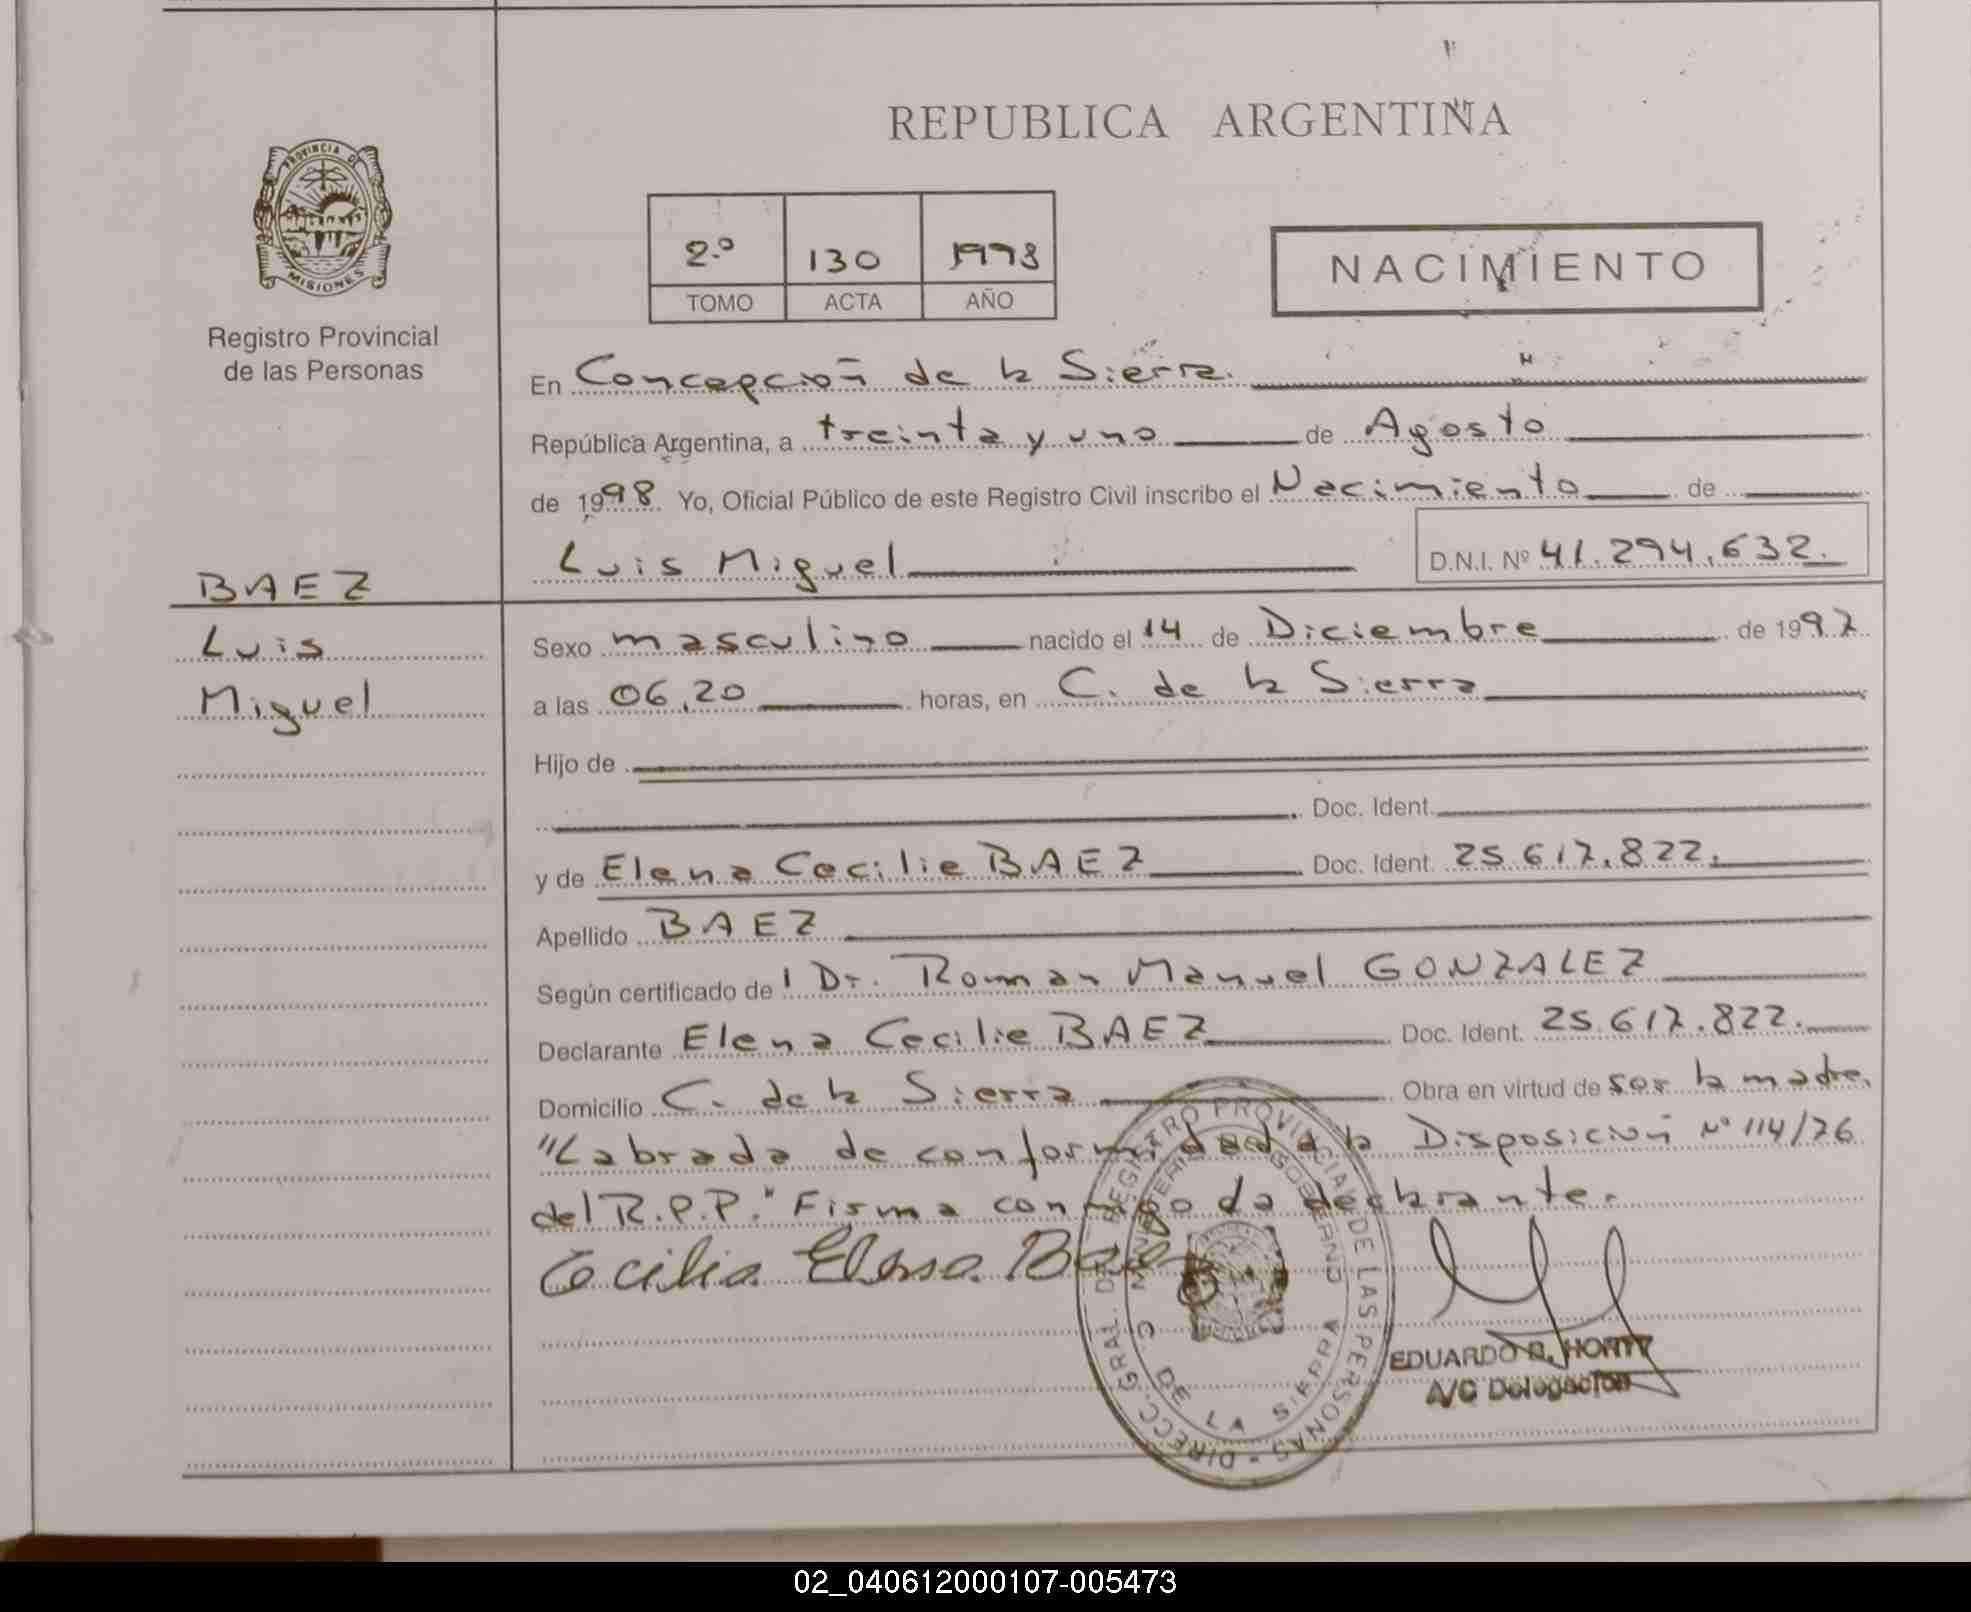 REPUBLICA ARGENTINA
PROVINCIA DE
MISIONES
Registro Provincial
de las Personas
2.º 130 1998
TOMO ACTA AÑO
NACIMIENTO
En Concepción de la Sierra.
República Argentina, a treinta y uno de Agosto
de 1998. Yo, Oficial Público de este Registro Civil inscribo el Nacimiento de
Luis Miguel D.N.I. Nº 41.294.632.
BAEZ
Luis
Miguel
Sexo masculino nacido el 14 de Diciembre de 1997
a las 06,20 horas, en C. de la Sierra
Hijo de
Doc. Ident.
y de Elena Cecilia BAEZ Doc. Ident. 25.617.822.
Apellido BAEZ
Según certificado de l Dr. Roman Manuel GONZALEZ
Declarante Elena Cecilia BAEZ Doc. Ident. 25.617.822.
Domicilio C. de la Sierra Obra en virtud de ser la madre.
"Labrada de conformidad a la Disposición Nº 114/76
del R.P.P." Firma conmigo la declarante.
Cecilia Elena Baez
DIRECC. GRAL. DEL REGISTRO PROVINCIAL DE LAS PERSONAS
MINISTERIO GOBIERNO
C. DE LA SIERRA
EDUARDO R.
A/C Delegación
02_040612000107-005473